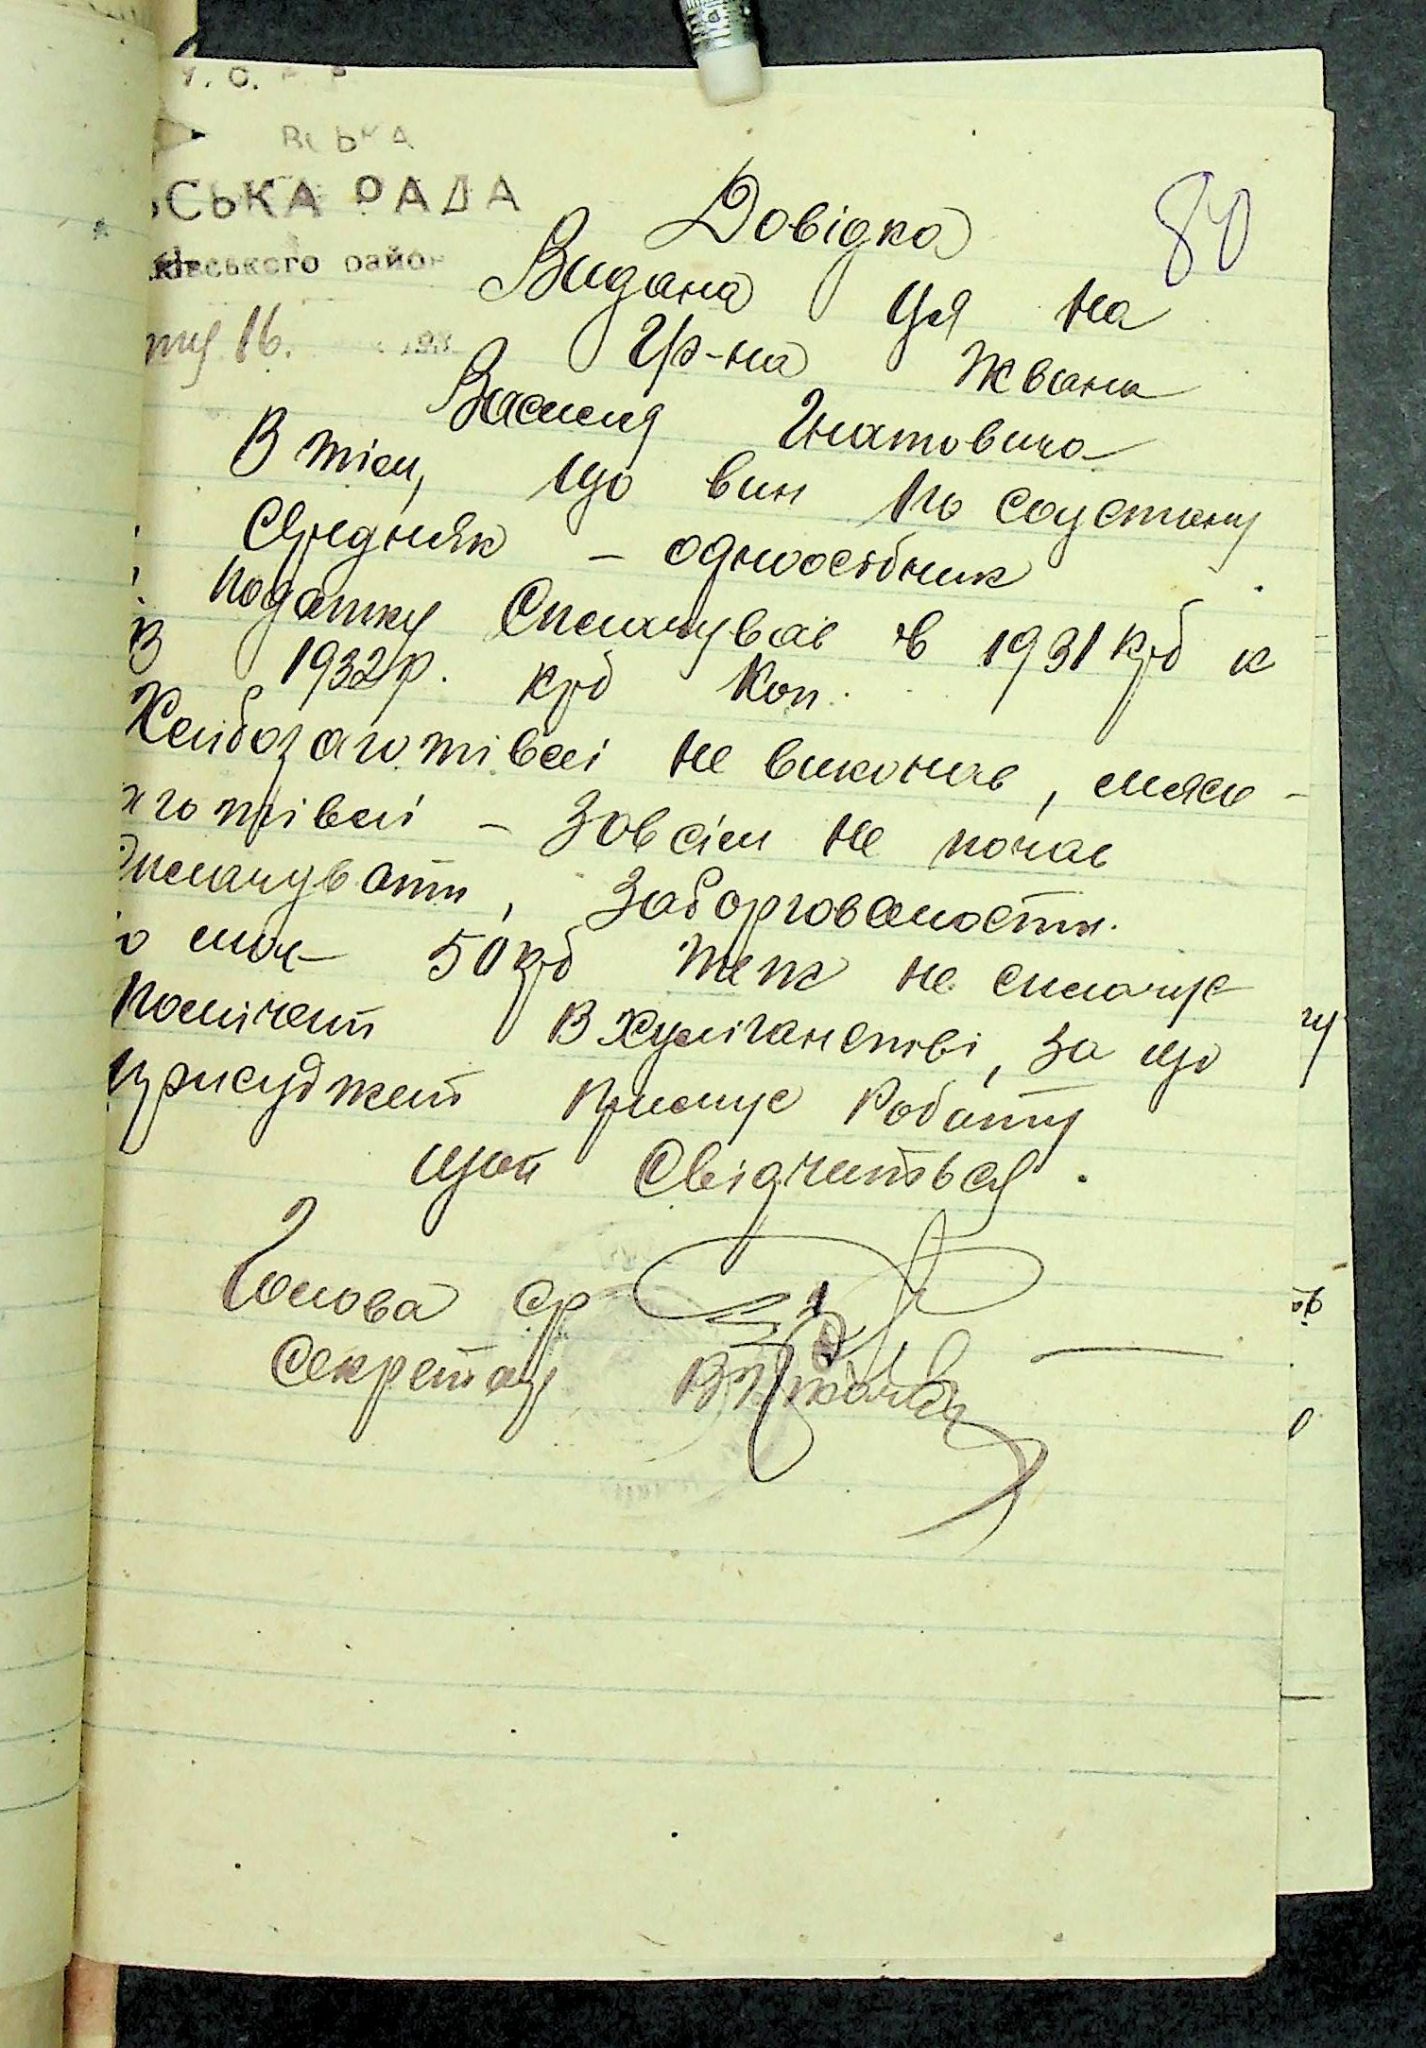 У. С.
ВСЬКА
ЬСЬКА РАДА
ківського район
16. 193
80
Довідка
Видана ця на
Гр-на Жвана
Василя Гнатовича
В тім, що вин по соцстану
Середняк – одноосібник
податку Сплачував в 1931 крб к
В 1932р. крб Коп.
Хлібозаготівлі не виконав, мясо-
аготівлі – Зовсім не почав
Сплачувати, Заборгованости
50 крб теж не сплачує
Помічений В Хуліганстві, за що
присуджений Примус Роботу
що й Свідчиться.
Голова ср
Секретар